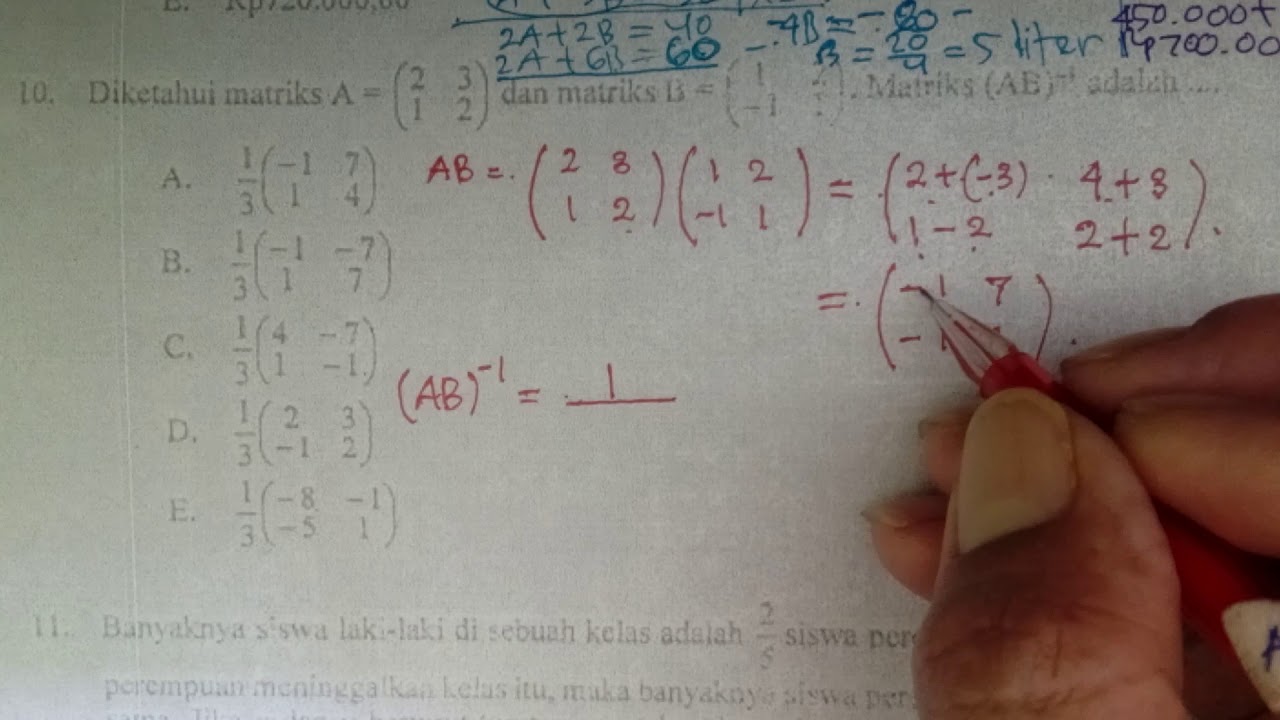 E. Rp720.000,00
2A + 2B = 40
2A + 6B = 60 -
-4B = -80 -
B = 20/4 = 5 liter
450.000+
Rp700.00
10. Diketahui matriks A = (2 3; 1 2) dan matriks B = (1 ; -1 ). Matriks (AB)⁻¹ adalah ....
A. 1/3 (-1 7; 1 4)
B. 1/3 (-1 -7; 1 7)
C. 1/3 (4 -7; 1 -1)
D. 1/3 (2 3; -1 2)
E. 1/3 (-8 -1; -5 1)
AB = (2 3; 1 2) (1 2; -1 1) = (2+(-3) 4+3; 1-2 2+2).
= (-1 7; -1
(AB)⁻¹ = 1
11. Banyaknya siswa laki-laki di sebuah kelas adalah 2/5 siswa
perempuan meninggalkan kelas itu, maka banyaknya siswa